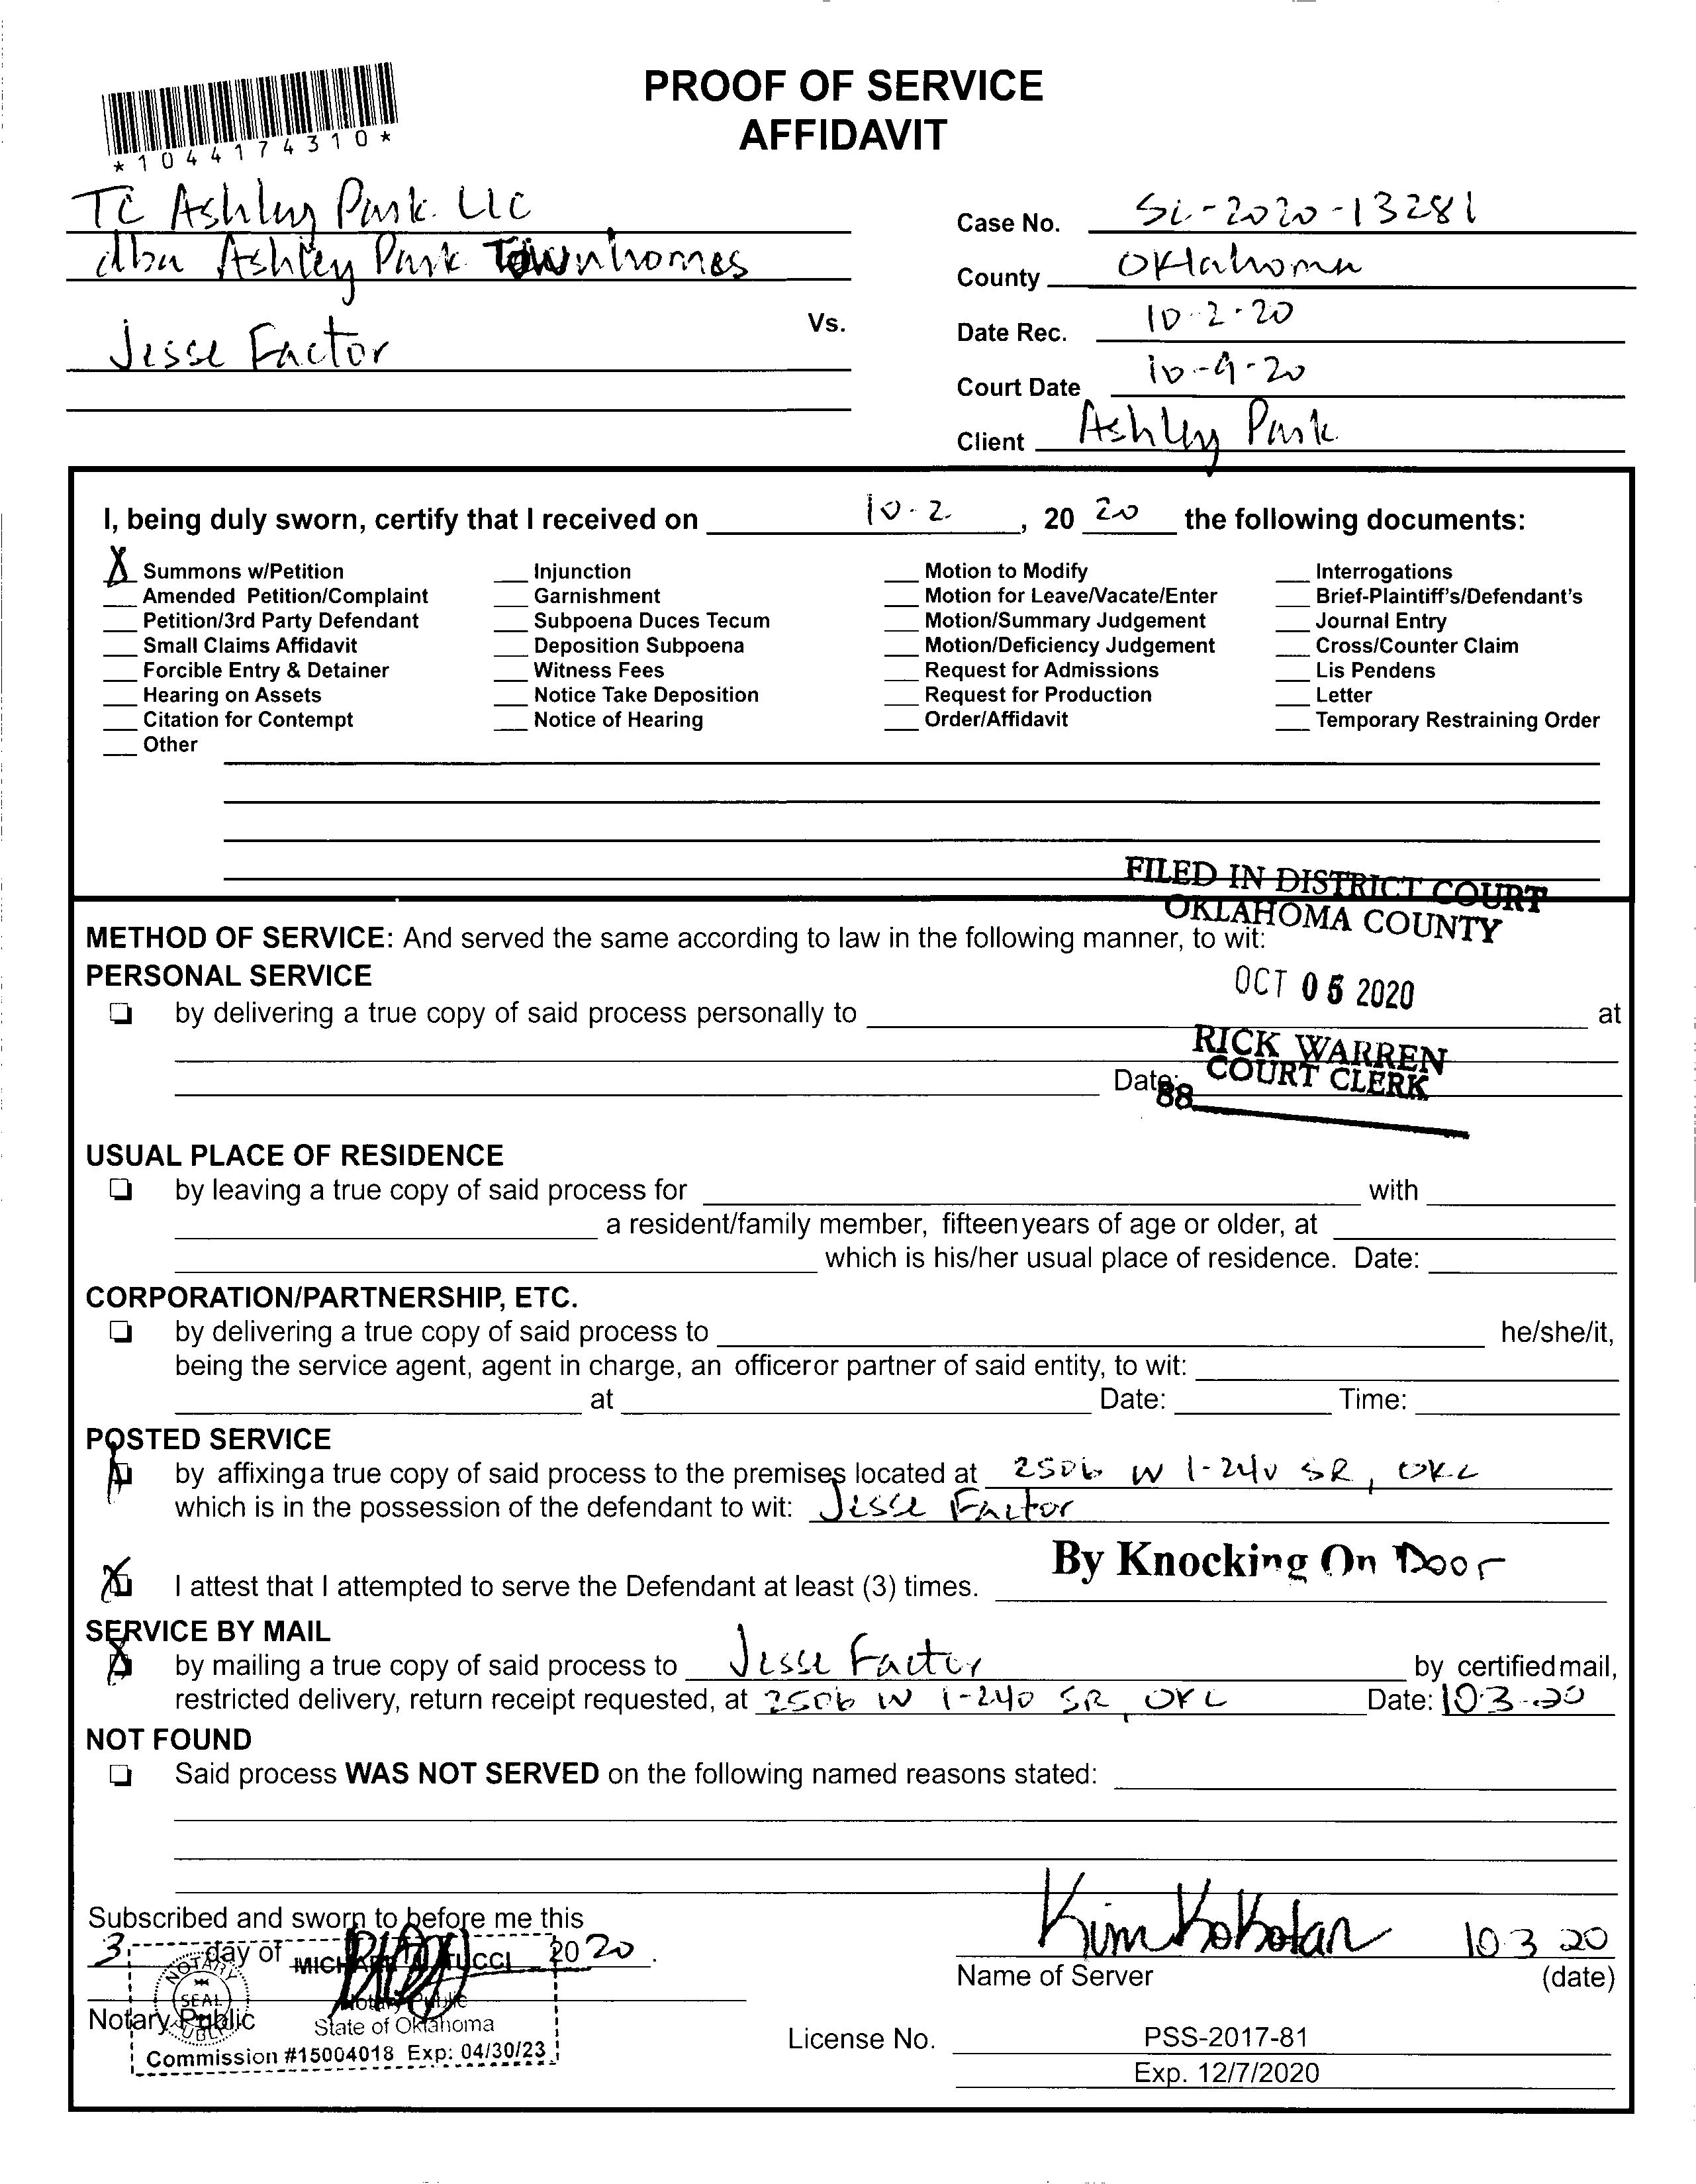 PROOF OF SERVICE
AFFIDAVIT
*1044174310*
TC Ashley Park LLC
dba Ashley Park Townhomes
Vs.
Jesse Factor
Case No. SC-2020-13281
County Oklahoma
Date Rec. 10-2-20
Court Date 10-9-20
Client Ashley Park
I, being duly sworn, certify that I received on 10-2, 20 20 the following documents:
X Summons w/Petition
Amended Petition/Complaint
Petition/3rd Party Defendant
Small Claims Affidavit
Forcible Entry & Detainer
Hearing on Assets
Citation for Contempt
Other
Injunction
Garnishment
Subpoena Duces Tecum
Deposition Subpoena
Witness Fees
Notice Take Deposition
Notice of Hearing
Motion to Modify
Motion for Leave/Vacate/Enter
Motion/Summary Judgement
Motion/Deficiency Judgement
Request for Admissions
Request for Production
Order/Affidavit
Interrogations
Brief-Plaintiff's/Defendant's
Journal Entry
Cross/Counter Claim
Lis Pendens
Letter
Temporary Restraining Order
FILED IN DISTRICT COURT
OKLAHOMA COUNTY
OCT 05 2020
RICK WARREN
COURT CLERK
88
METHOD OF SERVICE: And served the same according to law in the following manner, to wit:
PERSONAL SERVICE
by delivering a true copy of said process personally to at
Date:
USUAL PLACE OF RESIDENCE
by leaving a true copy of said process for with
a resident/family member, fifteen years of age or older, at
which is his/her usual place of residence. Date:
CORPORATION/PARTNERSHIP, ETC.
by delivering a true copy of said process to he/she/it,
being the service agent, agent in charge, an officer or partner of said entity, to wit:
at Date: Time:
POSTED SERVICE
by affixing a true copy of said process to the premises located at 2506 W I-240 SR, OKC
which is in the possession of the defendant to wit: Jesse Factor
By Knocking On Door
X I attest that I attempted to serve the Defendant at least (3) times.
SERVICE BY MAIL
X by mailing a true copy of said process to Jesse Factor by certified mail,
restricted delivery, return receipt requested, at 2506 W I-240 SR, OKC Date: 10-3-20
NOT FOUND
Said process WAS NOT SERVED on the following named reasons stated:
Subscribed and sworn to before me this
3 day of 20 20.
Notary Public
NOTARY PUBLIC
SEAL
Notary Public
State of Oklahoma
Commission #15004018 Exp: 04/30/23
Kim Kokotan 10 3 20
Name of Server (date)
License No. PSS-2017-81
Exp. 12/7/2020